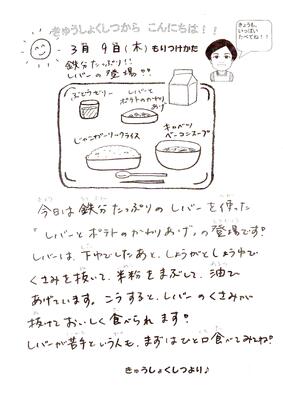 きゅうしょくしつから こんにちは!!
きょうも、
いっぱい
たべてね!!
3月 9日(木) もりつけかた
鉄分たっぷり!!
レバーの登場!!
ぶどうゼリー
レバーと
ポテトのかわりあげ
じゃこガーリックライス
キャベツ
ベーコンスープ
今日は鉄分たっぷりのレバーを使った
"レバーとポテトのかわりあげ"の登場です!
レバーは、下ゆでしたあと、しょうがとしょうゆで
くさみを抜いて、米粉をまぶして、油で
あげています。こうすると、レバーのくさみが
抜けておいしく食べられます!
レバーが苦手という人も、まずはひと口食べてみてね!
きゅうしょくしつより♪